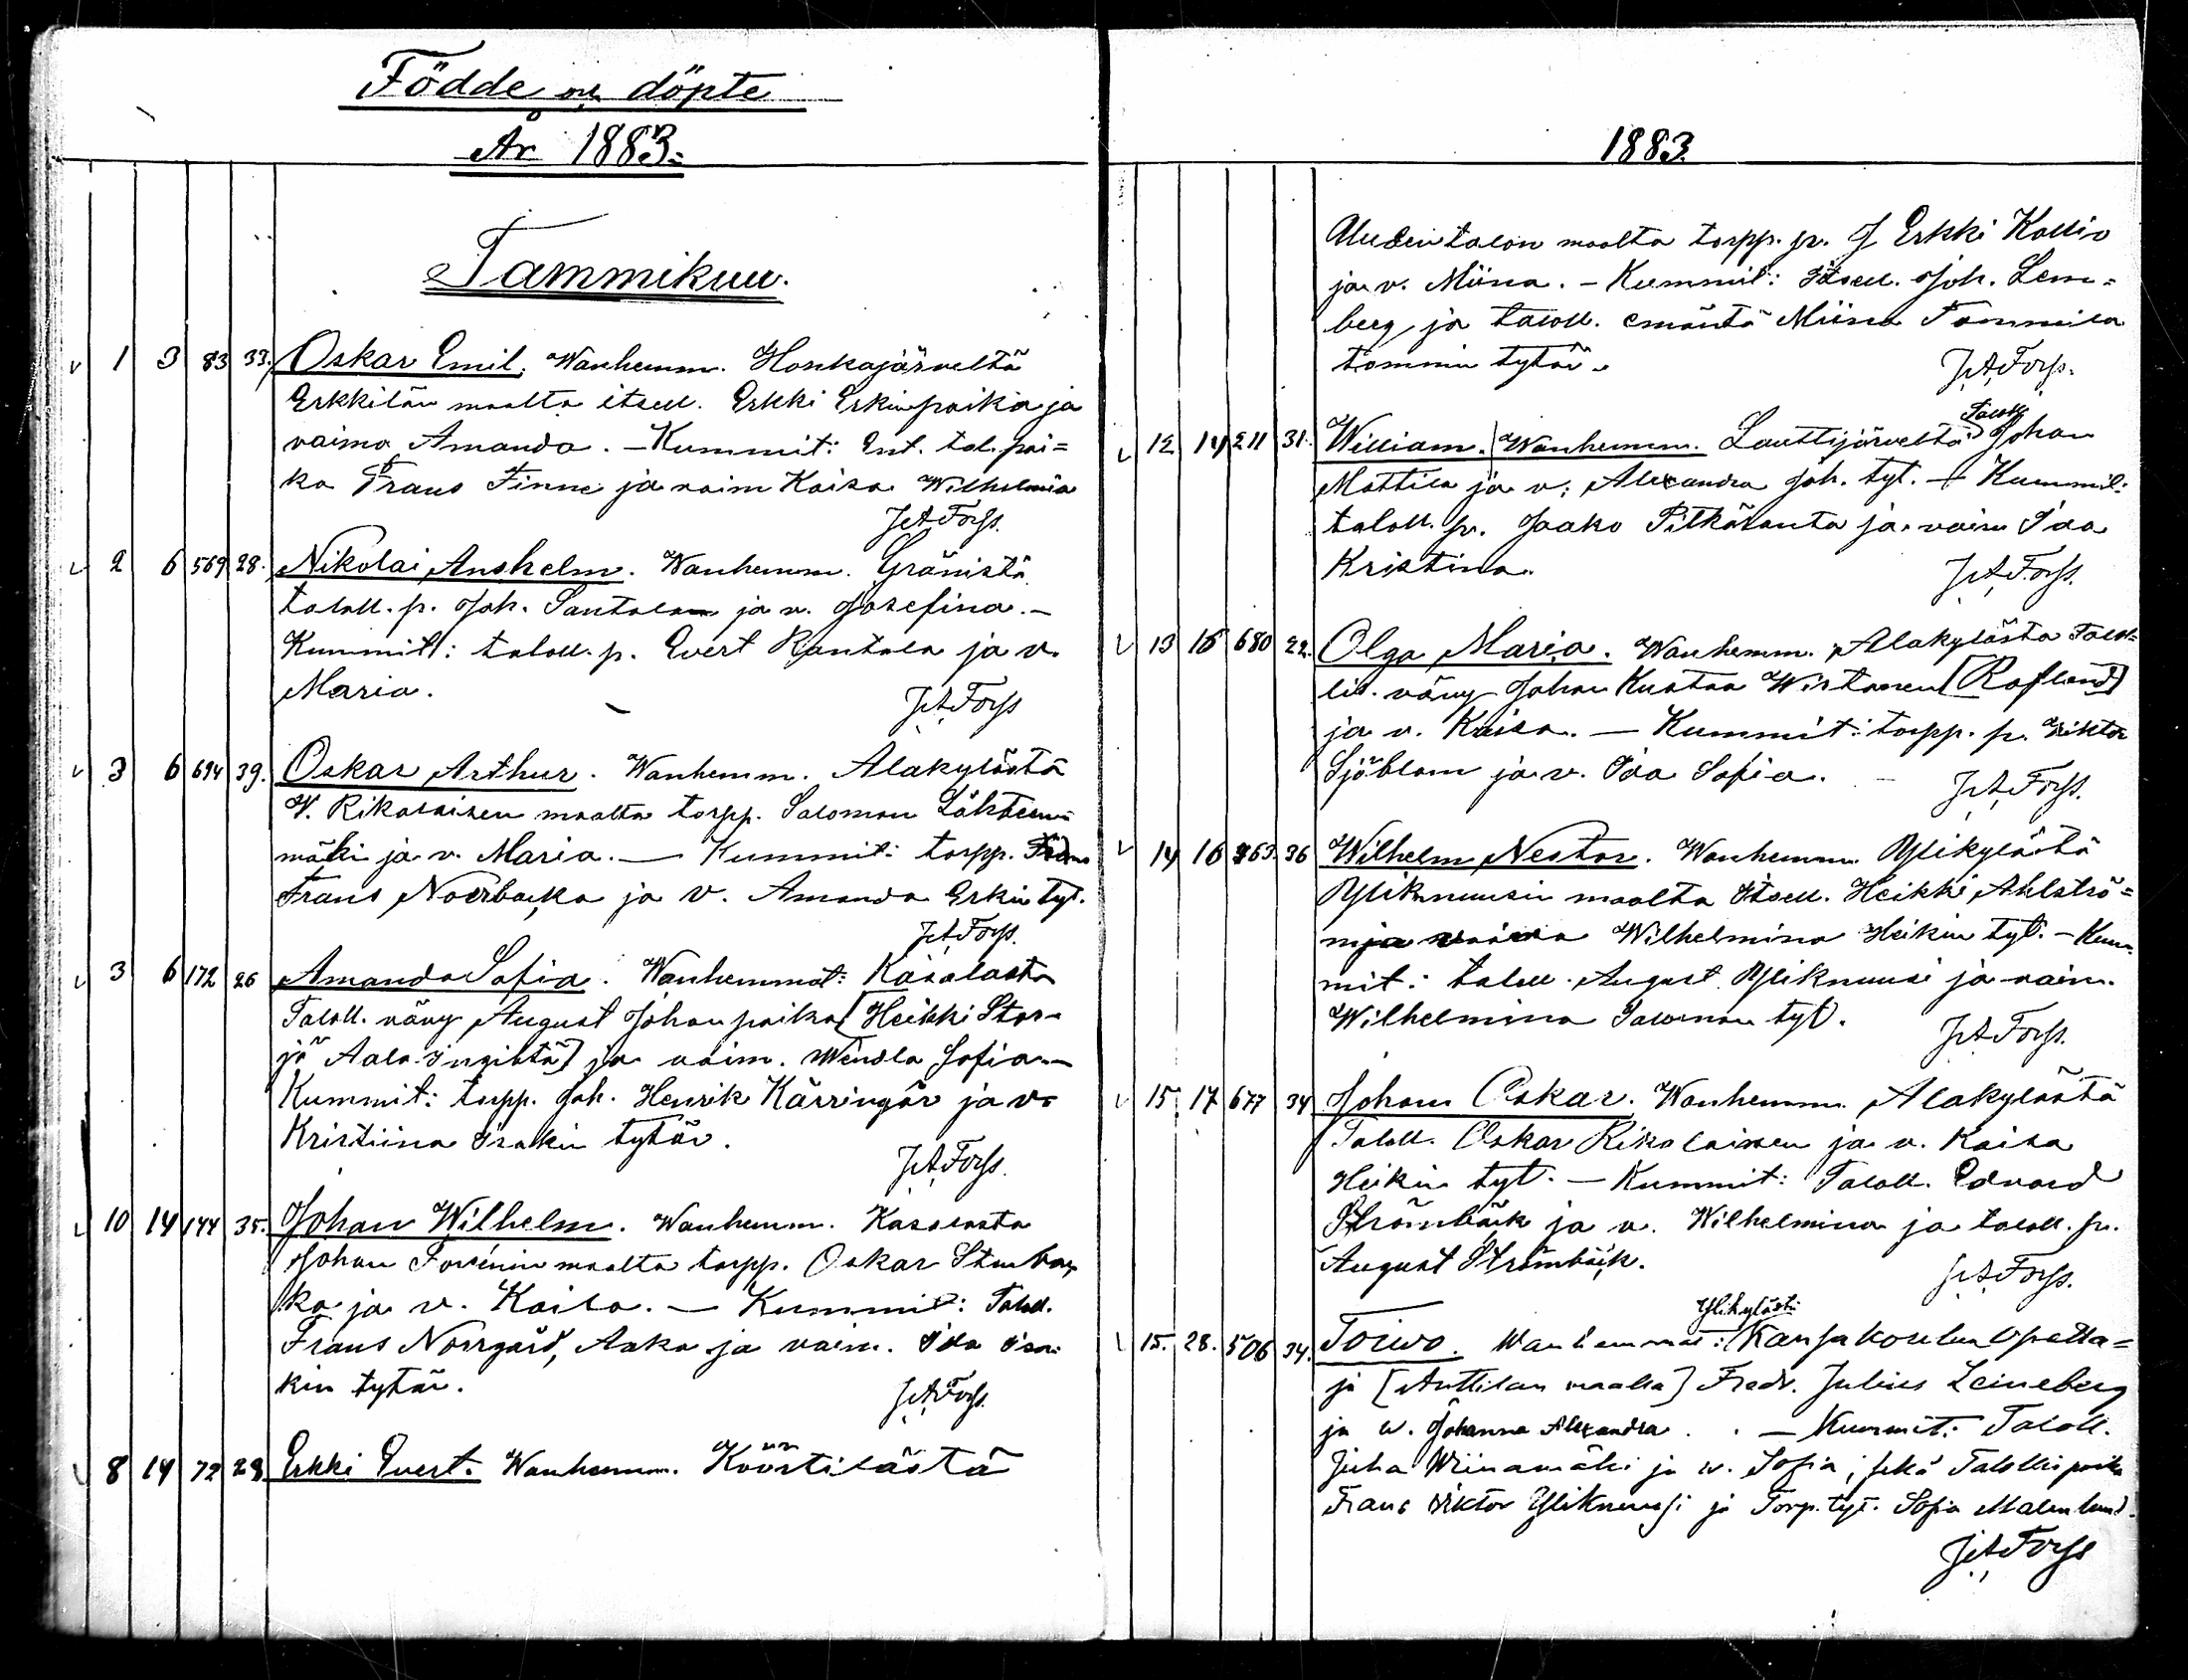 Födde och döpte
År 1883.
Tammikuu.
1 3 83 33. Oskar Emil. Wanhemm. Honkajärveltä
Erkkilän maalta itsell. Erkki Erkinpoika ja
vaimo Amanda. — Kummit: Ent. tal. poi=
ka Frans Finne ja vaim Kaisa Wilhelmia
JAForss.
2 6 569 28. Nikolai Anshelm. Wanhemm. Gränistä
taloll. p. Joh. Santala ja v. Josefina. —
Kummit: taloll. p. Evert Rantala ja v.
Maria.
JAForss
3 6 694 39. Oskar Arthur. Wanhemm. Alakylästä
W. Rikalaisen maalta torpp. Salomon Lähteen
mäki ja v. Maria. — Kummit: torpp.
Frans Norrbacka ja v. Amanda Erkin tyt.
JAForss.
3 6 172 26 Amanda Sofia. Wanhemmat: Kasalasta
Taloll. vävy August Johan poika [Heikki Stor-
jä Aala Ingistä] ja vaim. Wendla Sofia. —
Kummit: torpp. Joh. Henrik Kärringär ja v.
Kristiina Isakin tytär.
JAForss.
10 14 144 35. Johan Wilhelm. Wanhemm. Kasalasta
Johan maalta torpp. Oskar Stenbac
ka ja v. Kaisa. — Kummit: Taloll.
Frans Norrgård, Aaka ja vaim. Ida Isa
kin tytär.
JAForss.
8 14 72 28 Erkki Evert. Wanhemm. Köörtilästä
1883.
talon maalta torpp. p. J Erkki Kallio
ja v. Miina. — Kummit: Itsell. Joh. Lem=
berg ja taloll. emäntä Miina Tommila
tommin tytär.
JAForss.
12 14 211 31. William. Wanhemm. Lauttijärveltä Taloll. Johan
Mattila ja v. Alexandra Joh. tyt. — Kummit:
taloll. p. Jaako Pitkäranta ja vaim Ida
Kristina.
JAForss.
13 16 680 22. Olga Maria. Wanhemm. Alakylästä Talol=
lis. vävy Johan Kustaa Wistanen [Rofland]
ja v. Kaisa. — Kummit: torpp. p. Wiktor
Sjöblom ja v. Ida Sofia.
JAForss.
14 16 463 36 Wilhelm Nestor. Wanhemm. Ylikylästä
Yliknuusin maalta Itsell. Heikki Ahlströ=
m ja vaimo Wilhelmina Heikin tyt. — Kum=
mit: taloll. August Yliknuusi ja vaim.
Wilhelmina Salomon tyt.
JAForss.
15 17 677 34 Johan Oskar. Wanhemm. Alakylästä
Taloll. Oskar Rikalainen ja v. Kaisa
Heikin tyt. — Kummit: Taloll. Edvard
Strömbäck ja v. Wilhelmina ja taloll. p.
August Strömbäck.
JAForss.
15. 28. 506 34. Toivo. Wanhemmat: Ylikylästä Kansakoulun opetta=
ja [Anttilan maalta] Fredr. Julius Leineberg
ja w. Johanna Alexandra. — Kummit: Taloll.
Juha Wiinamäki ja w. Sofia, sekä Talollis poika
Frans Wiktor Yliknuusi ja Torp. tyt. Sofia Malmlund.
JAForss